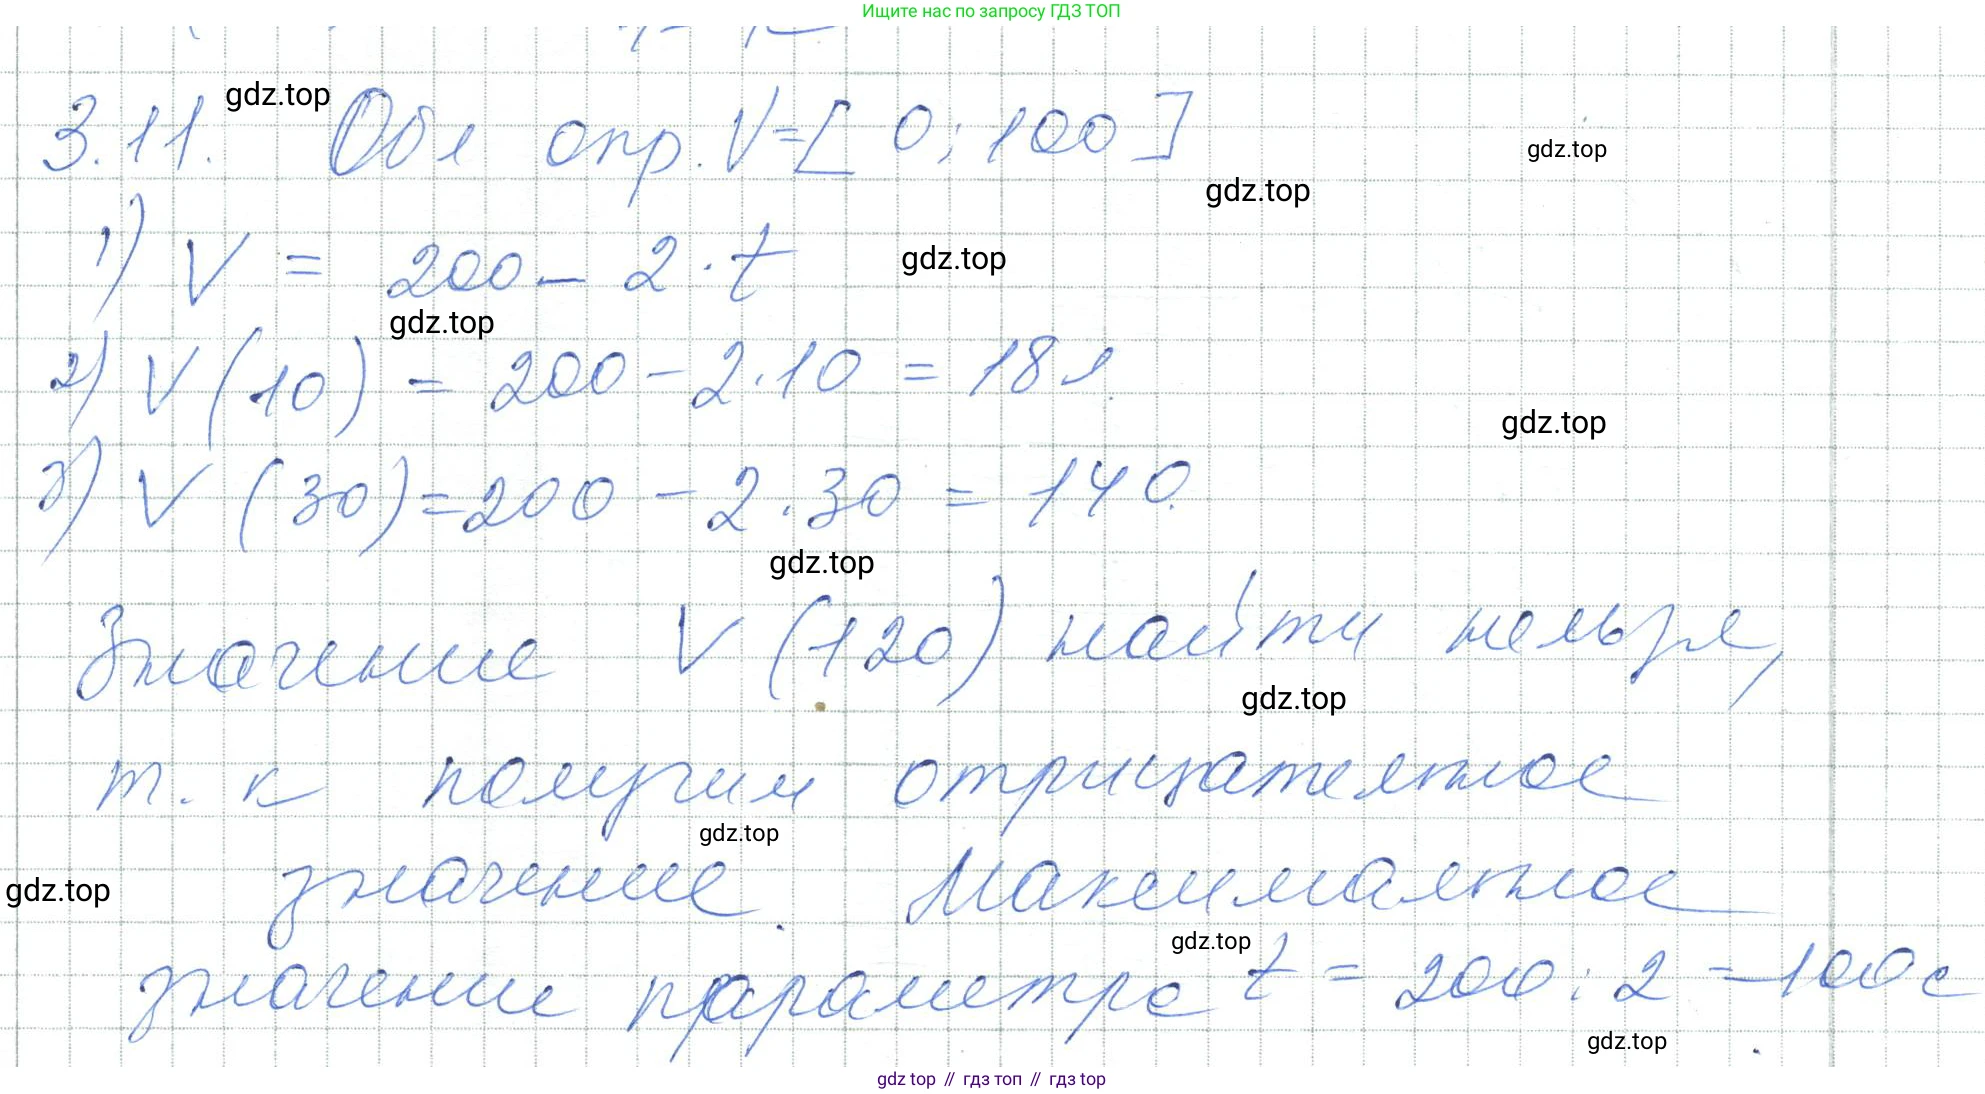 Ищите нас по запросу ГДЗ ТОП
3.11. gdz.top Обл опр. V=[0; 100] gdz.top
gdz.top
1) V = 200 - 2 · t gdz.top
gdz.top
2) V(10) = 200 - 2 · 10 = 18 л
gdz.top
3) V(30) = 200 - 2 · 30 = 140.
gdz.top
Значение V(120) найти нельзя,
gdz.top
т. к получим отрицательное
gdz.top
gdz.top значение. Максимальное
gdz.top
значение параметра t = 200 : 2 = 100 с
gdz.top
gdz top // гдз топ // гдз top